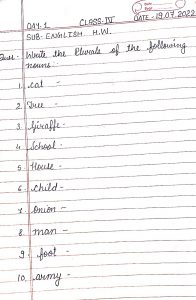 DAY-1 CLASS-IV DATE-19.07.2022
SUB-ENGLISH H.W.
Write the Plurals of the following
nouns:-
1. cat -
2. Tree -
3. Giraffe-
4. School-
5. House-
6. child-
7. Onion-
8. man-
9. foot-
10. army-